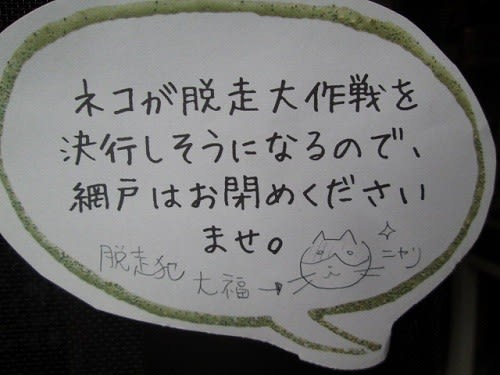 ネコが脱走大作戦を
決行しそうになるので、
網戸はお閉めください
ませ。
脱走犯 大福→ ニヤリ